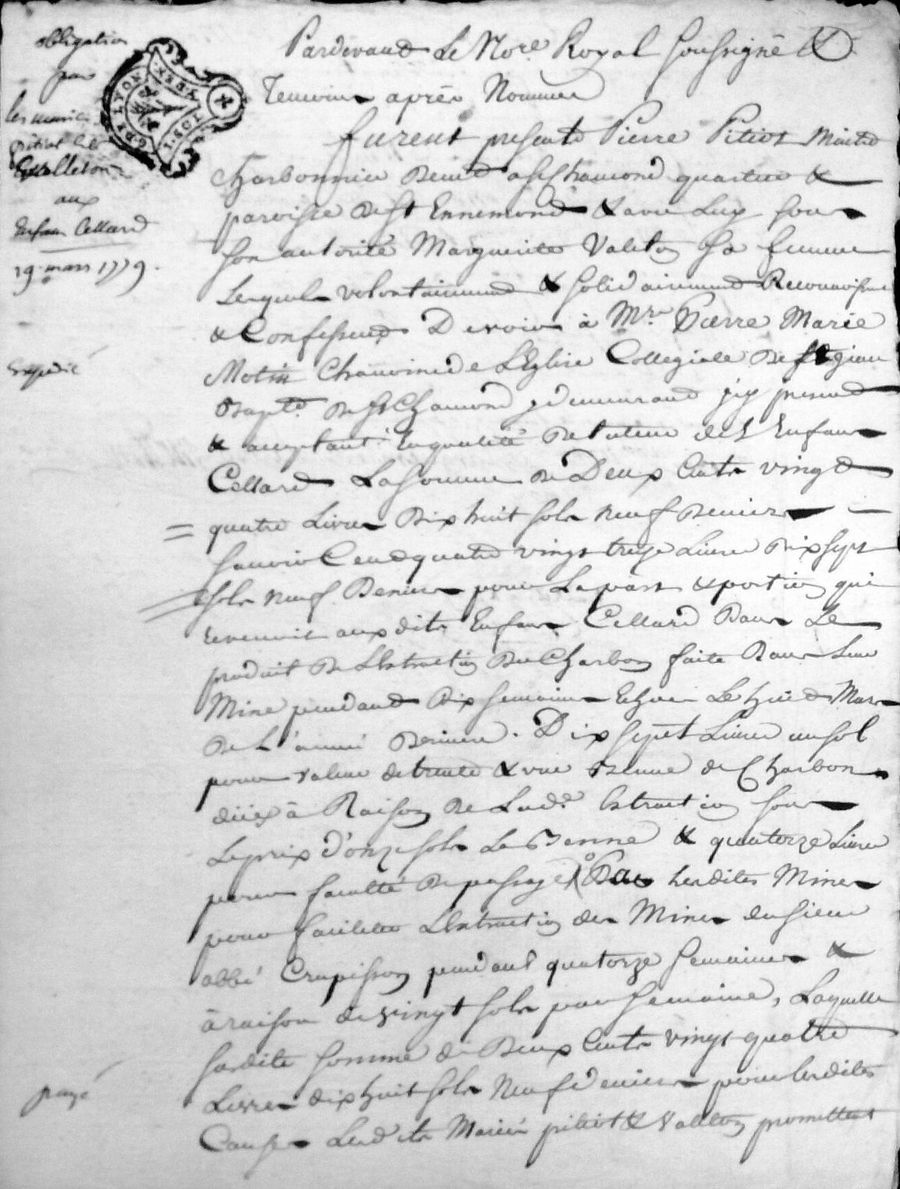 obligation
par
les mariés
pitiot &
Valleton
aux
Enfans Cellard
19e mars 1779.
Expédié
payé
GEN. LYON
Pardevant Le Nore. Royal soussigné &
Temoins après Nommés
furent presents Pierre Pitiot Maitre
charbonnier demt. a St Chamond quartier &
paroisse de St Ennemond & avec Luy sous
son autorité Marguerite Valeton sa femme
Lesquels volontairement & solidairement Reconnoissent
& Confessent Devoir à Mre. Pierre Marie
Motin Chanoine de L'Eglise Collegiale de St Jean
Bapte. de St Chamond y demeurant icy present
& acceptant en qualité de tuteur des Enfans
Cellard La somme de Deux Cents vingt
quatre Livres Dix huit sols neuf Deniers
scavoir Cent quatre vingt treize Livres Dix sept
sols neuf Deniers pour La part & portion qui
revenoit aux dits Enfans Cellard Dans Le
produit de L'Extraction du Charbon faite Dans Leur
Mine pendant Dix semaines Echues Le huit Mars
De L'année Derniere. Dix sept Livres un sol
pour valeur de trente & une Benne de Charbon
düex à Raison de Lade. Extraction sous
Le prix d'onze sols La Benne & quatorze Livres
pour faculté de passage Dans Lesdites Mines
pour faciliter L'Extraction des Mines du sieur
abbé Crapisson pendant quatorze semaines &
à raison de vingt sols par semaine, Laquelle
susdite somme de Deux Cents vingt quatre
Livres dix huit sols Neuf deniers pour Lesdites
Causes Lesdits Mariés pitiot & Valeton promettent